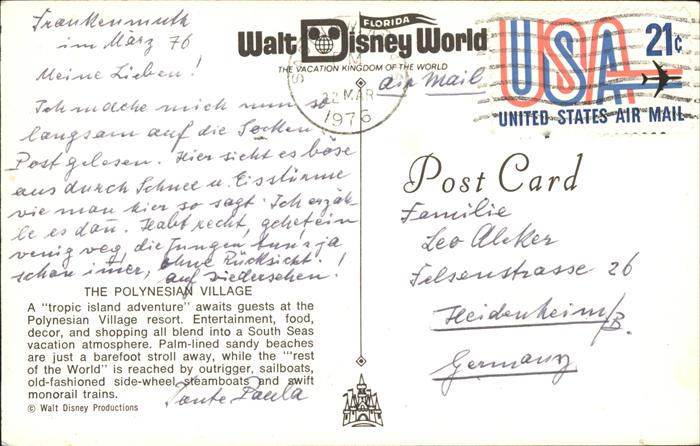 Frankenmuth
im März 76
Meine Lieben!
Ich mache mich nun so
langsam auf die Socken.
Post gelesen. Hier sieht es böse
aus durch Schnee u. Eisstürme
wie man hier so sagt. Ich erzäh-
le es dan. Habt recht, geht ein
wenig weg, die Jungen tun's ja
schon imer, ohne Rücksicht!
auf Wiedersehen!
THE POLYNESIAN VILLAGE
A "tropic island adventure" awaits guests at the
Polynesian Village resort. Entertainment, food,
decor, and shopping all blend into a South Seas
vacation atmosphere. Palm-lined sandy beaches
are just a barefoot stroll away, while the "'rest
of the World" is reached by outrigger, sailboats,
old-fashioned side-wheel steamboats and swift
monorail trains.
© Walt Disney Productions
Tante Paula
FLORIDA
Walt Disney World
THE VACATION KINGDOM OF THE WORLD
Air Mail
22 MAR
1976
USA 21c
UNITED STATES AIR MAIL
Post Card
Familie
Leo Alcker
Felsenstrasse 26
Heidenheim/B.
Germany